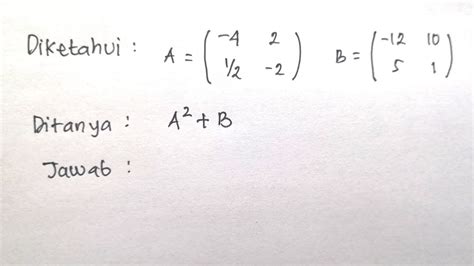 Diketahui : A = ( -4 2 ; 1/2 -2 ) B = ( -12 10 ; 5 1 )
Ditanya : A² + B
Jawab :